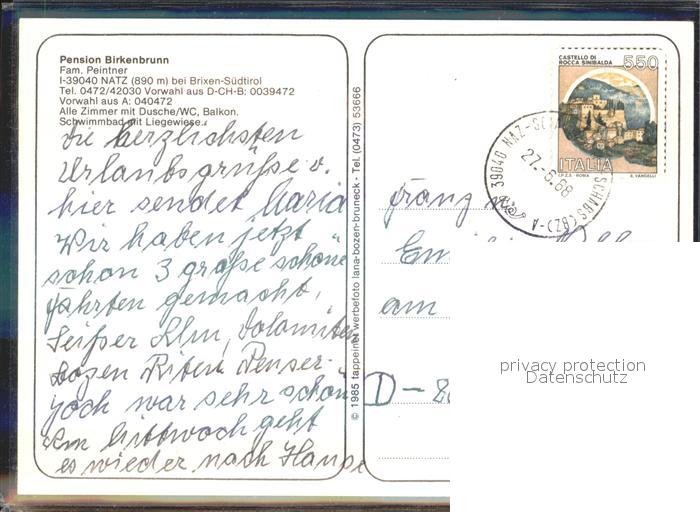 Pension Birkenbrunn
Fam. Peintner
I-39040 NATZ (890 m) bei Brixen-Südtirol
Tel. 0472/42030 Vorwahl aus D-CH-B: 0039472
Vorwahl aus A: 040472
Alle Zimmer mit Dusche/WC, Balkon,
Schwimmbad mit Liegewiese.
Die herzlichsten
Urlaubsgrüße v.
hier sendet Maria
Wir haben jetzt
schon 3 große schöne
Fahrten gemacht,
Seißer Alm, Dolomiten
Bozen Riten Penser-
joch war sehr schön
Am Mittwoch geht
es wieder nach Hause
© 1985 tappeiner werbefoto lana-bozen-bruneck · Tel. (0473) 53666
CASTELLO DI
ROCCA SINIBALDA
550
ITALIA
I.P.Z.S. - ROMA
E. VANGELLI
39040 NAZ-SCIAVES
27.-6.88
SCHABS (BZ)-A
Franz
am
D-8
privacy protection
Datenschutz